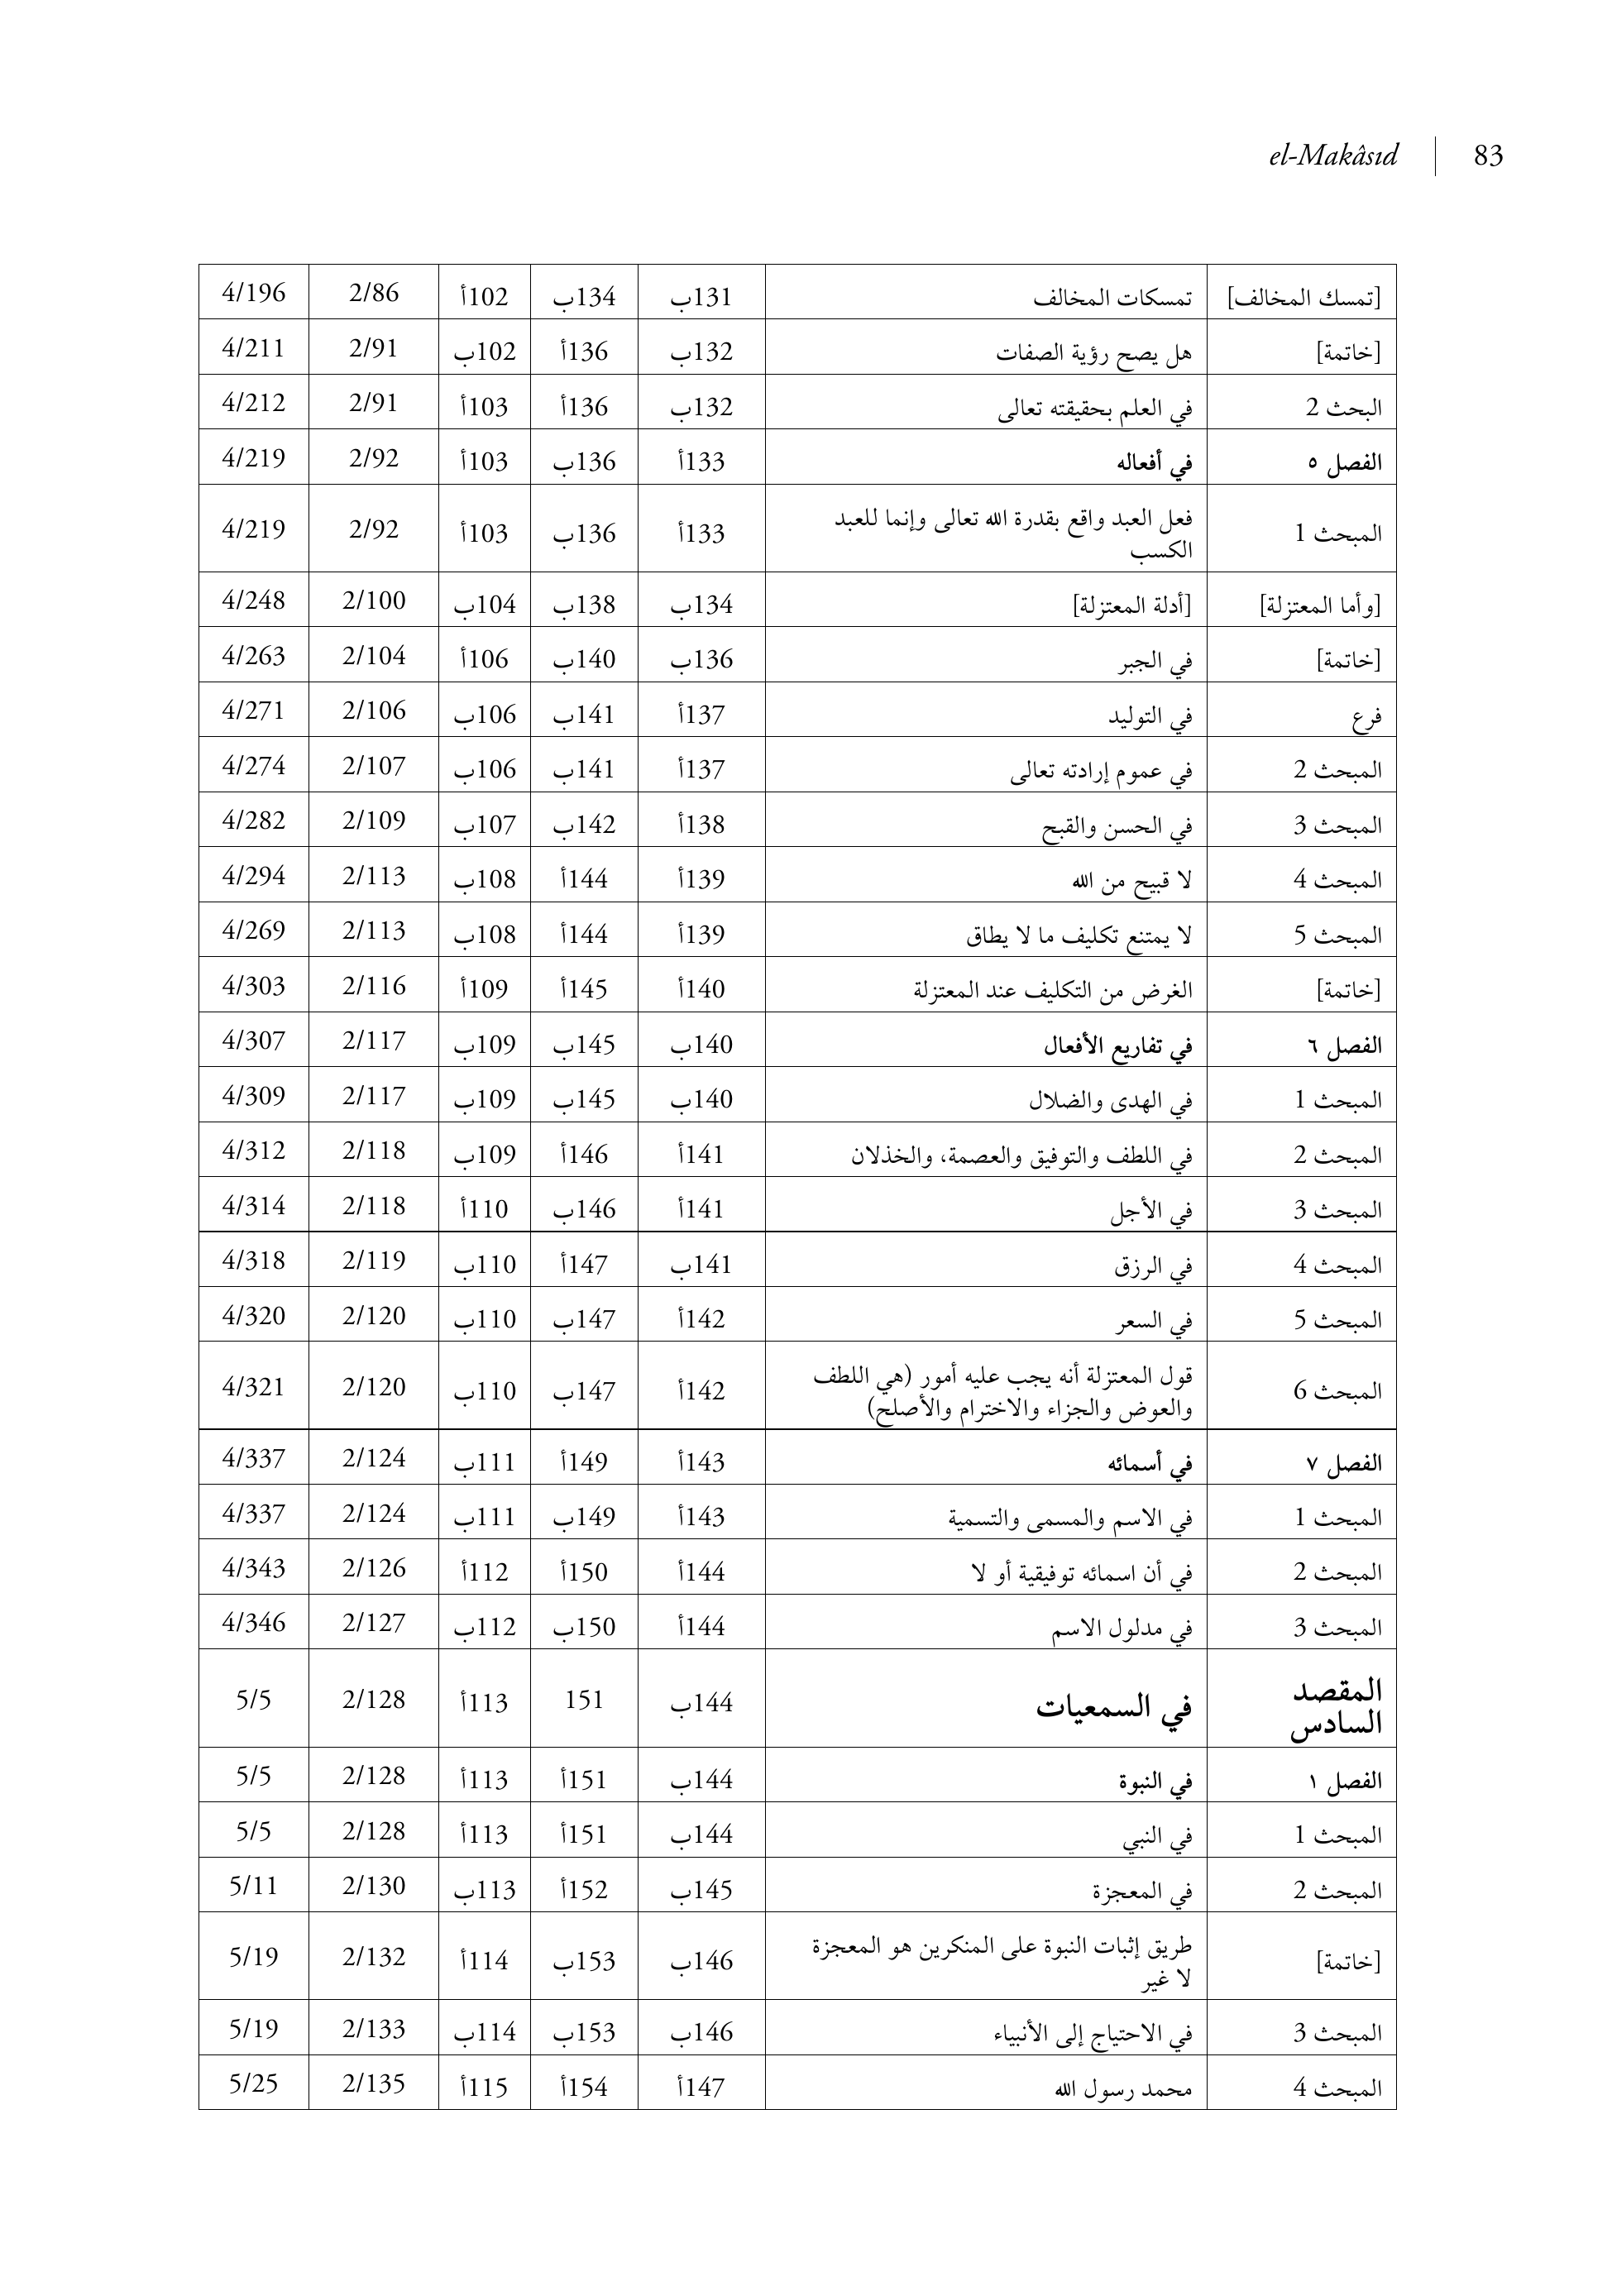 el-Makâsıd 83
[تمسك المخالف] تمسكات المخالف 131ب 134ب 102أ 2/86 4/196
[خاتمة] هل يصح رؤية الصفات 132ب 136أ 102ب 2/91 4/211
البحث 2 في العلم بحقيقته تعالى 132ب 136أ 103أ 2/91 4/212
الفصل ٥ في أفعاله 133أ 136ب 103أ 2/92 4/219
المبحث 1 فعل العبد واقع بقدرة الله تعالى وإنما للعبد
الكسب 133أ 136ب 103أ 2/92 4/219
[وأما المعتزلة] [أدلة المعتزلة] 134ب 138ب 104ب 2/100 4/248
[خاتمة] في الجبر 136ب 140ب 106أ 2/104 4/263
فرع في التوليد 137أ 141ب 106ب 2/106 4/271
المبحث 2 في عموم إرادته تعالى 137أ 141ب 106ب 2/107 4/274
المبحث 3 في الحسن والقبح 138أ 142ب 107ب 2/109 4/282
المبحث 4 لا قبيح من الله 139أ 144أ 108ب 2/113 4/294
المبحث 5 لا يمتنع تكليف ما لا يطاق 139أ 144أ 108ب 2/113 4/269
[خاتمة] الغرض من التكليف عند المعتزلة 140أ 145أ 109أ 2/116 4/303
الفصل ٦ في تفاريع الأفعال 140ب 145ب 109ب 2/117 4/307
المبحث 1 في الهدى والضلال 140ب 145ب 109ب 2/117 4/309
المبحث 2 في اللطف والتوفيق والعصمة، والخذلان 141أ 146أ 109ب 2/118 4/312
المبحث 3 في الأجل 141أ 146ب 110أ 2/118 4/314
المبحث 4 في الرزق 141ب 147أ 110ب 2/119 4/318
المبحث 5 في السعر 142أ 147ب 110ب 2/120 4/320
المبحث 6 قول المعتزلة أنه يجب عليه أمور (هي اللطف
والعوض والجزاء والاخترام والأصلح) 142أ 147ب 110ب 2/120 4/321
الفصل ٧ في أسمائه 143أ 149أ 111ب 2/124 4/337
المبحث 1 في الاسم والمسمى والتسمية 143أ 149ب 111ب 2/124 4/337
المبحث 2 في أن اسمائه توفيقية أو لا 144أ 150أ 112أ 2/126 4/343
المبحث 3 في مدلول الاسم 144أ 150ب 112ب 2/127 4/346
المقصد
السادس في السمعيات 144ب 151 113أ 2/128 5/5
الفصل ١ في النبوة 144ب 151أ 113أ 2/128 5/5
المبحث 1 في النبي 144ب 151أ 113أ 2/128 5/5
المبحث 2 في المعجزة 145ب 152أ 113ب 2/130 5/11
[خاتمة] طريق إثبات النبوة على المنكرين هو المعجزة
لا غير 146ب 153ب 114أ 2/132 5/19
المبحث 3 في الاحتياج إلى الأنبياء 146ب 153ب 114ب 2/133 5/19
المبحث 4 محمد رسول الله 147أ 154أ 115أ 2/135 5/25